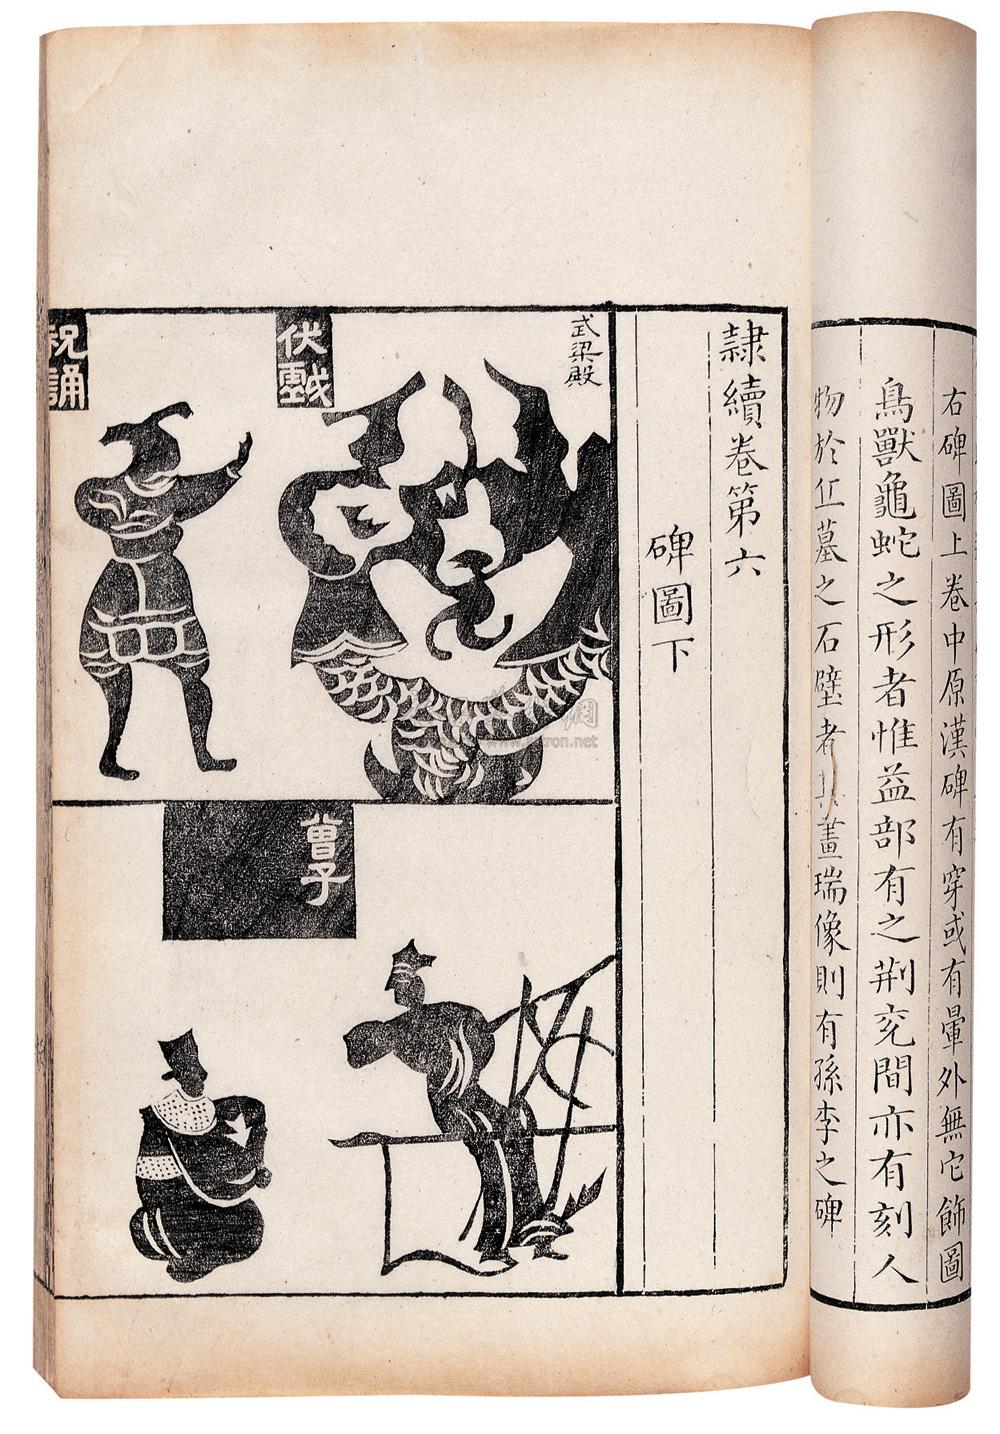 右碑圖上卷中原漢碑有穿或有暈外無它飾圖
鳥獸龜蛇之形者惟益部有之荆兖間亦有刻人
物於丘墓之石壁者其畫瑞像則有孫李之碑
隸續卷第六
碑圖下
武梁殿
伏戲
祝誦
曾子